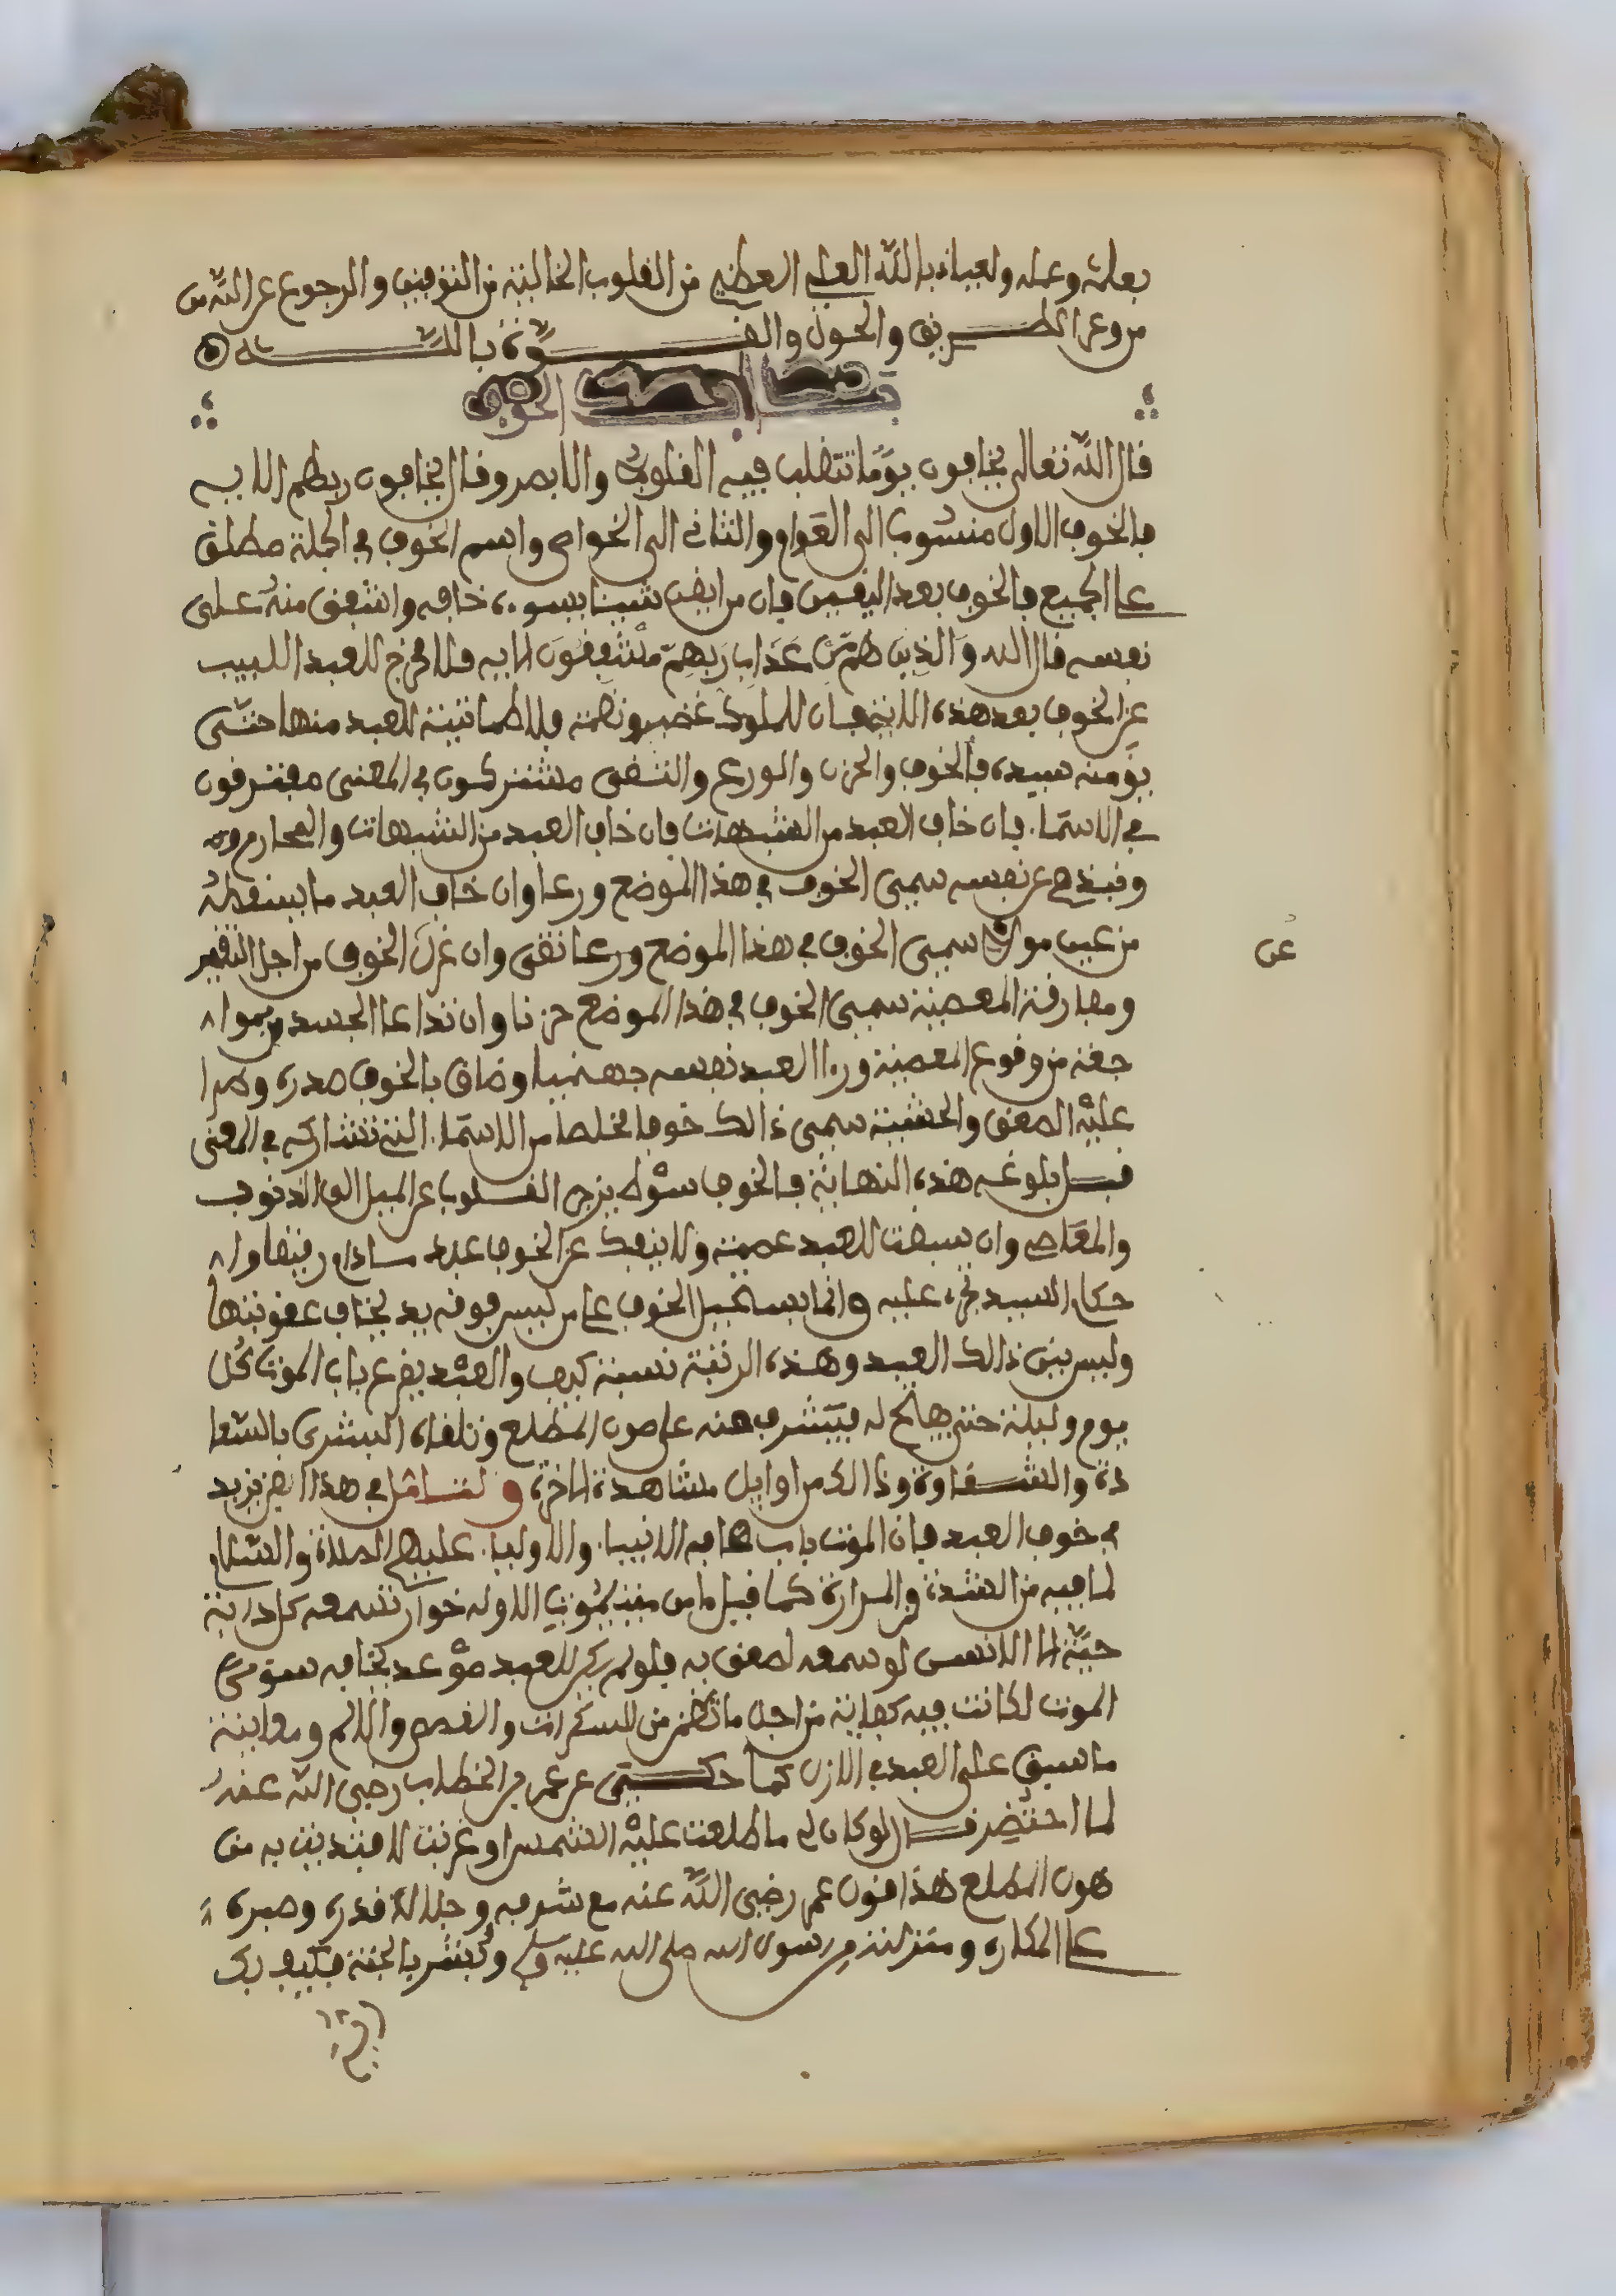 بعلمه وعمله ولعياذ بالله العلي العظيم من القلوب الخالية من التوفيق والرجوع عن الله من
من وعر الطريق والحول والقوة بالله
الخوف
قال الله تعالى يخافون يوما تتقلب فيه القلوب والابصر وقال يخافون ربهم الاية
فالخوف الاول منسوب الى العوام والثاني الى الخواص واسم الخوف في الجملة مطلق
على الجميع فالخوف بعد اليقين فان من ايقن شيئا بسوء خافه واشفق منه على
نفسه قال الله والذين هم من عذاب ربهم مشفقون الاية فلا مخرج للعبد اللبيب
عن الخوف بعد هذه الاية فان للملوك غضب ونقمة فلا طمانينة للعبد منها حتى
يؤمنه سيده فالخوف والحزن والورع والتقى مشتركون في المعنى مفترقون
في الاسما فان خاف العبد من الشبهات فان خاف العبد من الشبهات والمحارم
عن نفسه سمي الخوف في هذا الموضع ورعا وان خاف العبد ما يسقطه
من عين مولاه سمي الخوف في هذا الموضع ورعا تقى وان الخوف من اجل
عن
ومفارقة المعصية سمي الخوف في هذا الموضع حزنا وان على الجسد
من وقوع المعصية وراا العبد نفسه جهنميا وضاق بالخوف صدره
عليه الصعق والخشية سمي ذالك خوفا مخلصا من الاسما التي تشاركه في المعنى
بلوغه هذه النهاية فالخوف سوط يزجر القلوب عن الميل الى الذنوب
والمعاصي وان سبقت للعبد عصمة ولا ينفك عن الخوف عبد
السيد عليه وانما يستحيل الخوف على من ليس فوقه يد يخاف عقوبتها
وليس بين ذالك العبد وهذه الرتبة نسبة كيف والعبد يقرع باب الموت كل
يوم وليلة حتى يفتح له فيشرف منه على هون المطلع وتلقاه البشرى بالسعا
دة والشقاوة وذالك من اوايل مشاهدة الاخرة ولقد في هذا
في خوف العبد فان الموت باب هابه الانبيا والاوليا عليهم الصلاة والسلام
لما فيه من الشدة والمرارة كما قيل ما من ميت يموت الا وله خوار تسمعه كل دابة
الا الانس لو سمعه لصعق به فلو لم يكن للعبد موعد يخافه سوى
الموت لكانت فيه كفاية من اجل ما تضمن من السكرات والغصص والالم ومعاينة
ما سبق على العبد في الازل كما حكي عن عمر بن الخطاب رضي الله عنه
لما احتضر قال لو كان لي ما طلعت عليه الشمس او غربت لافتديت به من
هون المطلع هذا قول عمر رضي الله عنه مع شرفه وجلالة قدره وصبره
على المكاره ومنزلته من رسول الله صلى الله عليه وسلم وبشر بالجنة فكيف بك